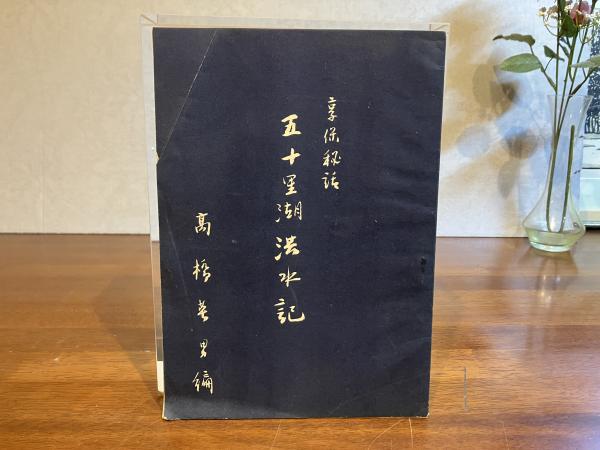 享保秘話
五十里湖洪水記
高橋英男編